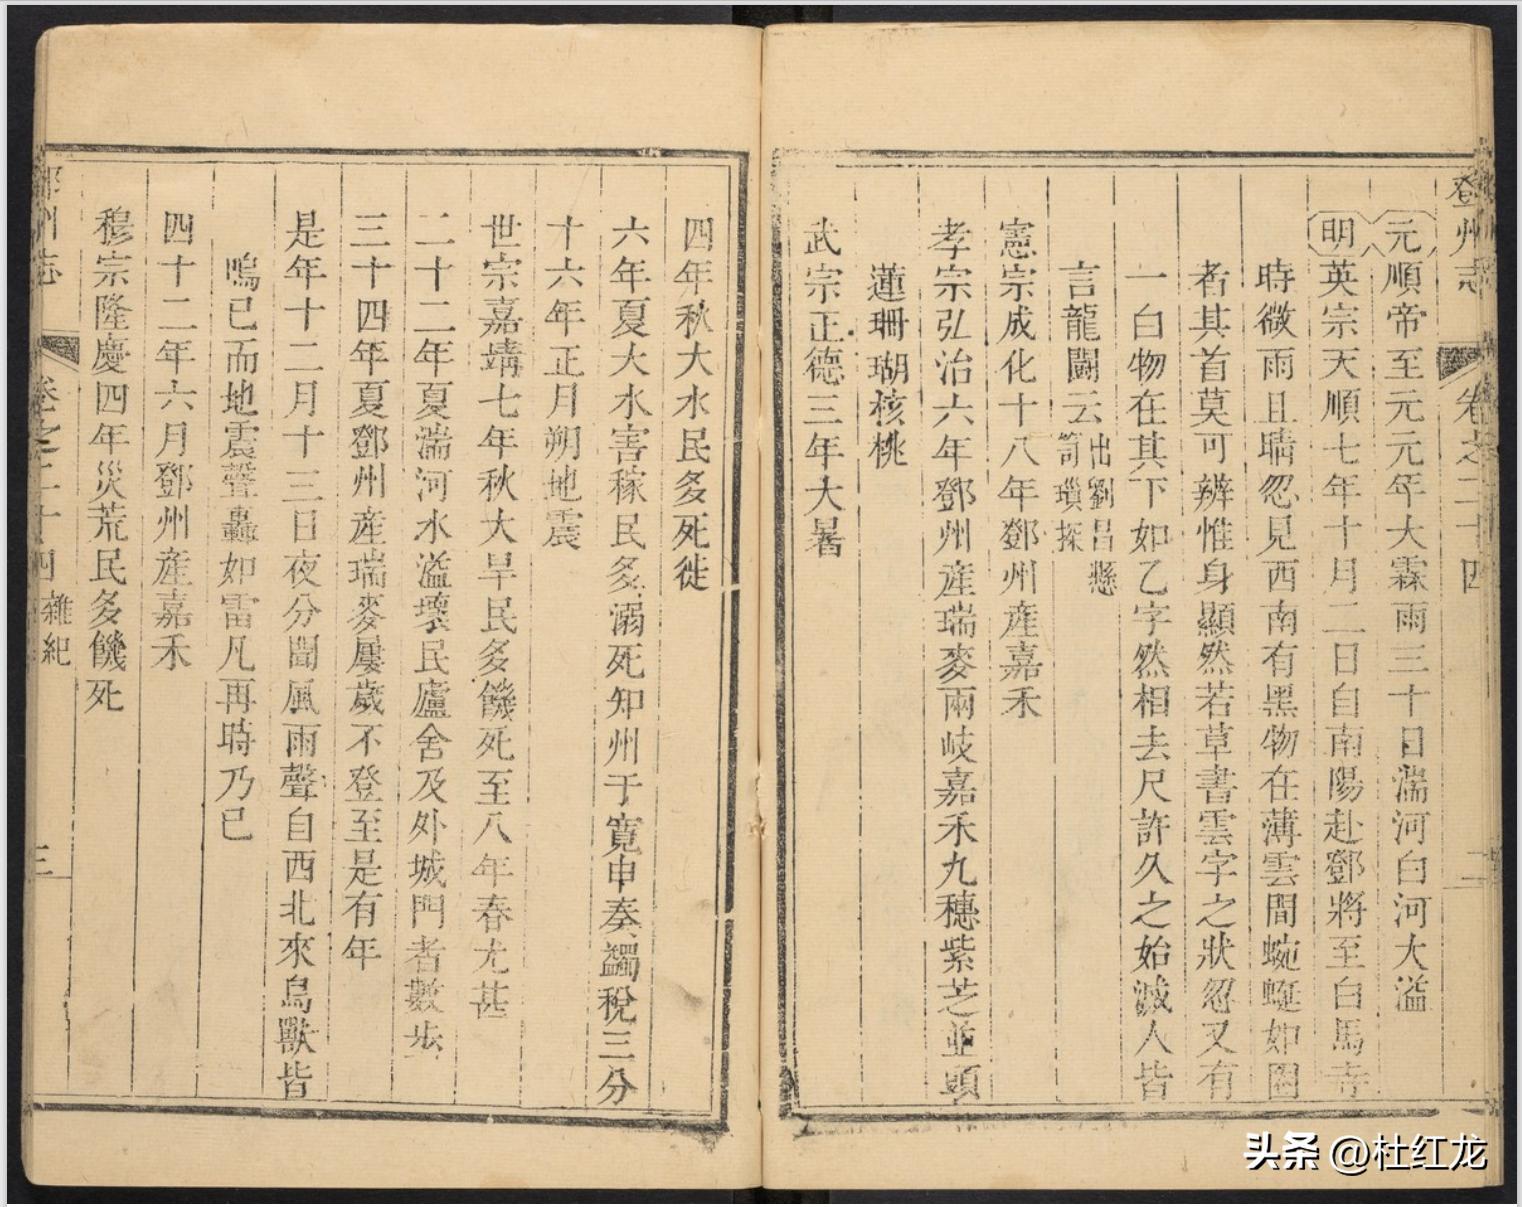 州志
卷之二十四
二
元順帝至元元年大霖雨三十日湍河白河大溢
明英宗天順七年十月二日自南陽赴鄧將至白馬寺
時微雨且晴忽見西南有黑物在薄雲間蜿蜒如圈
者其首莫可辨惟身顯然若草書雲字之狀忽又有
一白物在其下如乙字然相去尺許久之始滅人皆
言龍鬭云出劉昌懸
笥瑣探
憲宗成化十八年鄧州產嘉禾
孝宗弘治六年鄧州產瑞麥兩岐嘉禾九穗紫芝並頭
蓮珊瑚核桃
武宗正德三年大暑
四年秋大水民多死徙
六年夏大水害稼民多溺死知州于寬申奏蠲稅三分
十六年正月朔地震
世宗嘉靖七年秋大旱民多饑死至八年春尤甚
二十二年夏湍河水溢壞民廬舍及外城門者數步
三十四年夏鄧州產瑞麥屢歲不登至是有年
是年十二月十三日夜分聞風雨聲自西北來鳥獸皆
鳴已而地震聲轟如雷凡再時乃已
四十二年六月鄧州產嘉禾
穆宗隆慶四年災荒民多饑死
州志
卷之二十四 雜紀
三
头条 @杜红龙